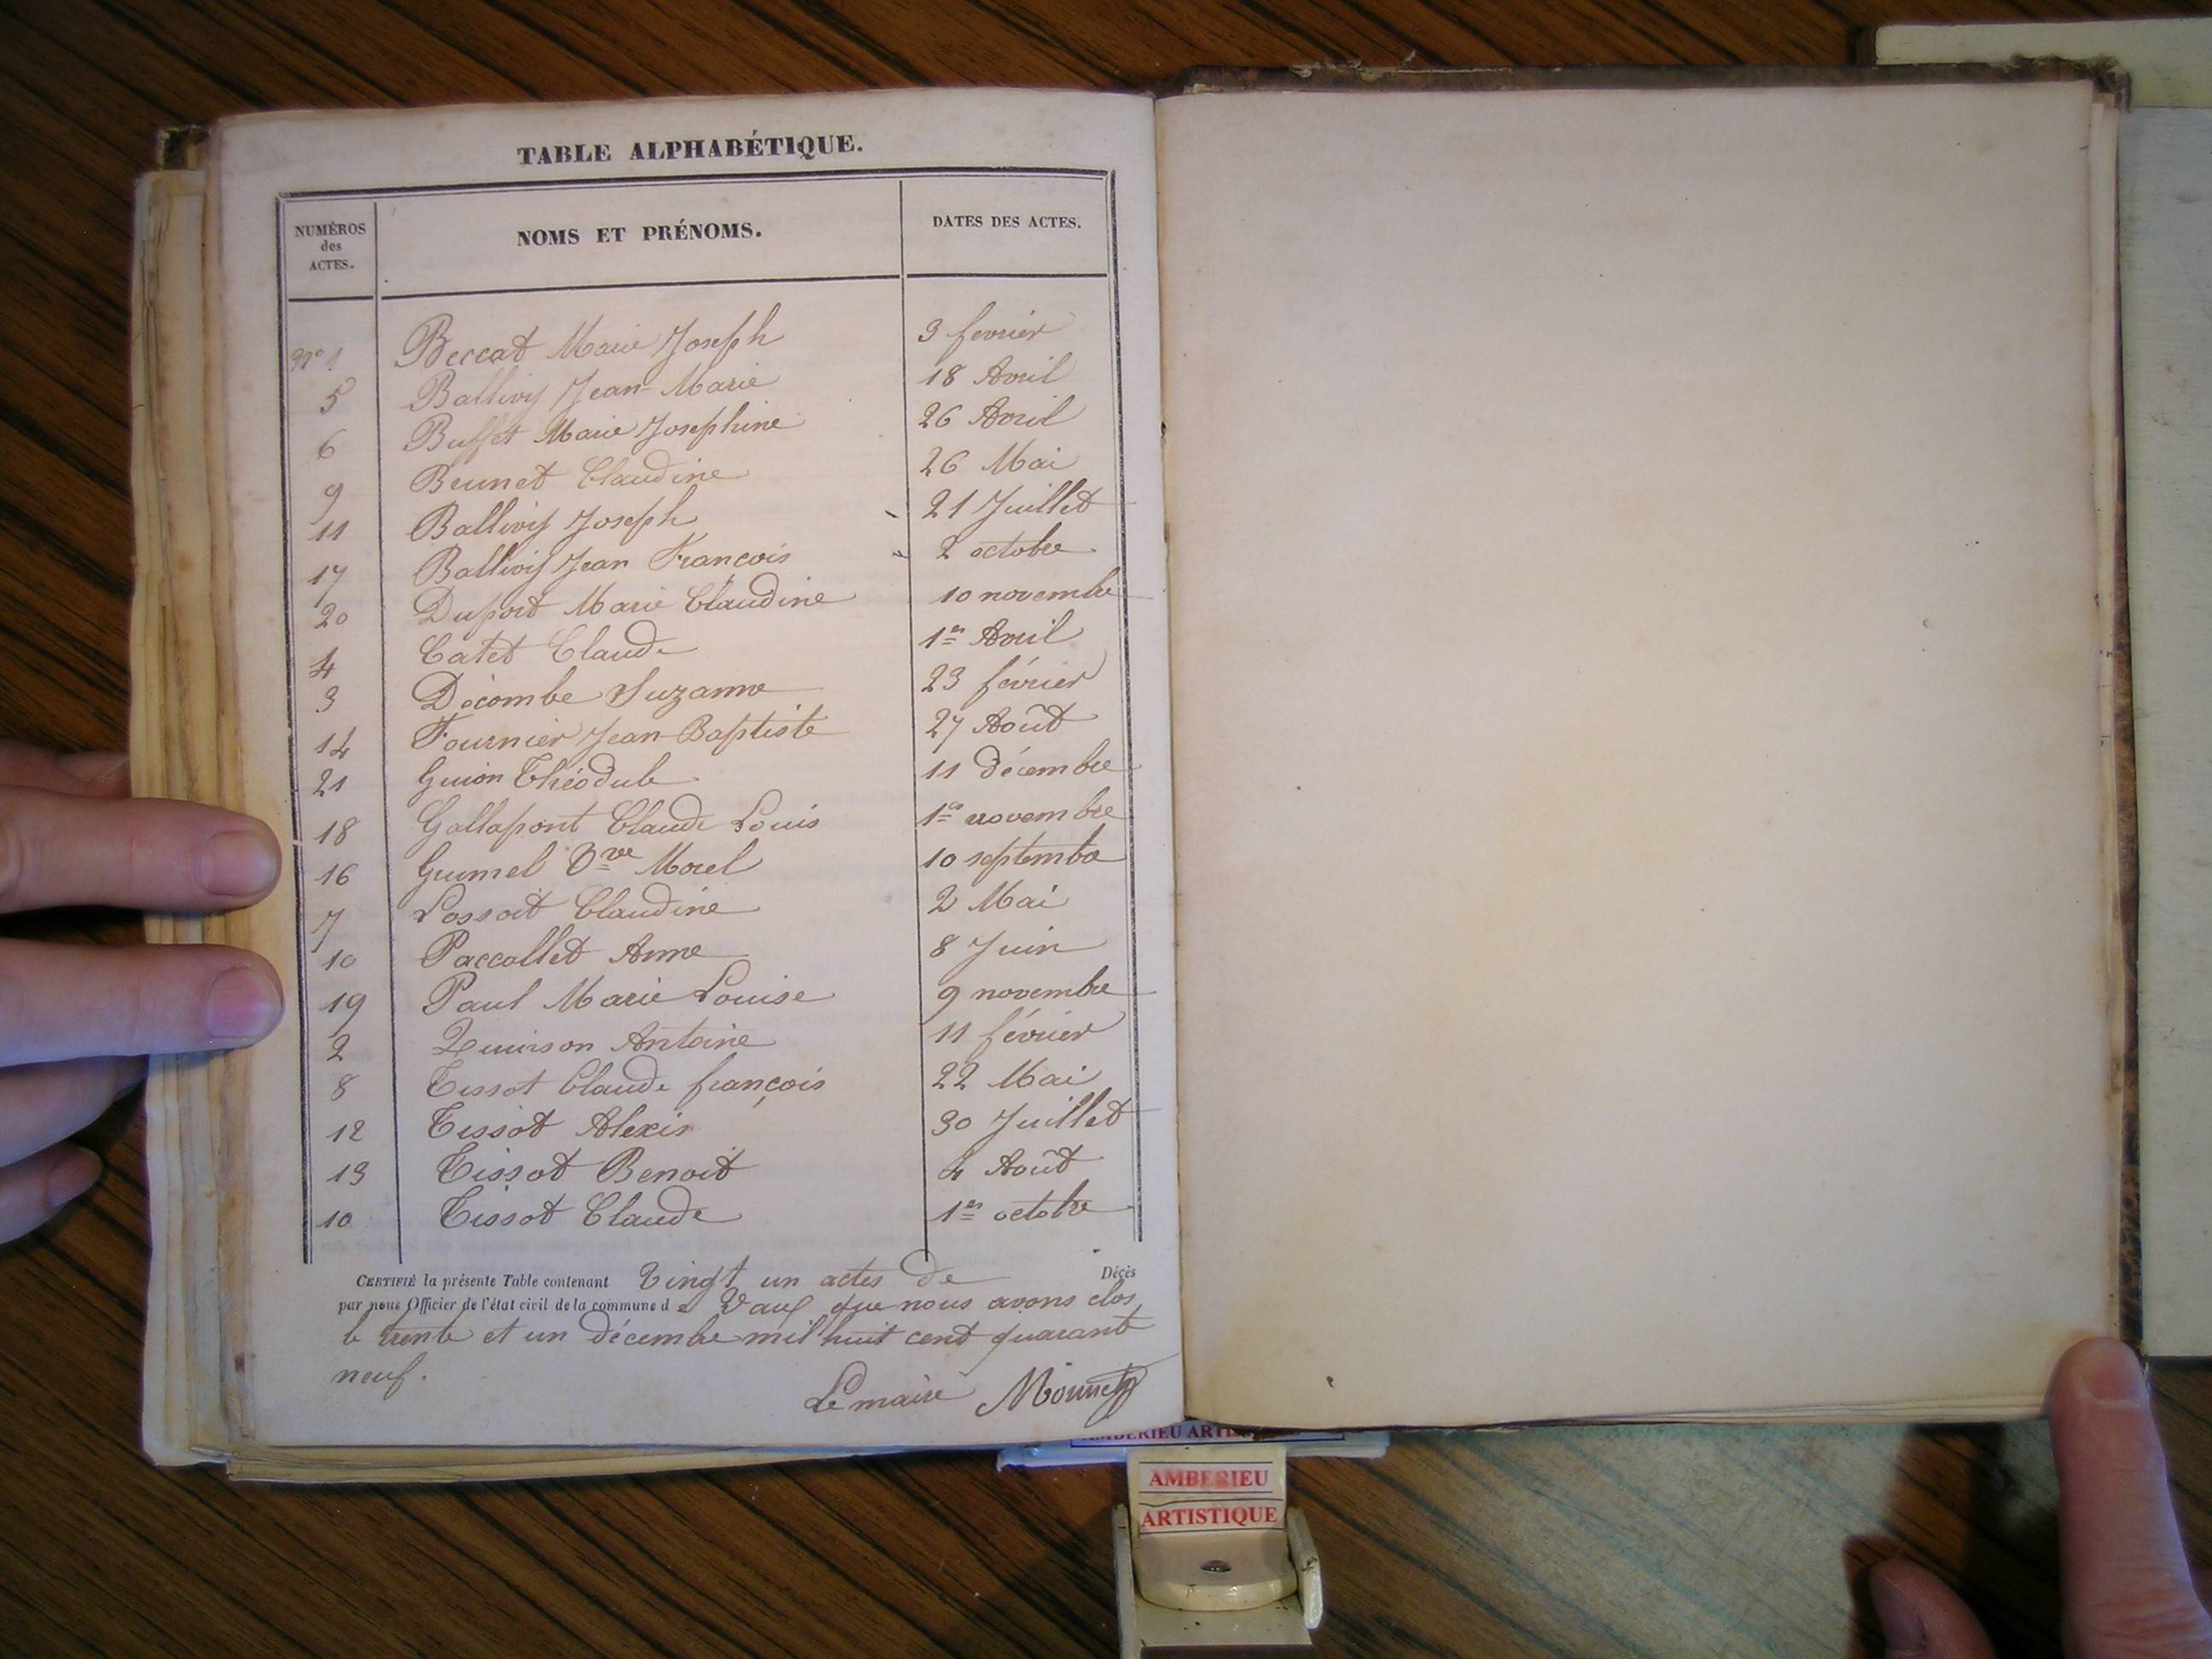 TABLE ALPHABÉTIQUE.
NUMÉROS des ACTES. NOMS ET PRÉNOMS. DATES DES ACTES.
N° 1 Beccat Marie Joseph 3 fevrier
5 Ballivy Jean-Marie 18 Avril
6 Buffet Marie Josephine 26 Avril
9 Brunet Claudine 26 Mai
11 Ballivy Joseph 21 Juillet
17 Ballivy Jean Francois 2 octobre
20 Duport Marie Claudine 10 novembre
4 Catet Claude 1er Avril
3 Décombe Suzanne 23 février
14 Fournier Jean-Baptiste 27 Août
21 Guion Théodule 11 décembre
18 Gallapont Claude Louis 1er novembre
16 Grumel Vve Morel 10 septembre
7 Lossoit Claudine 2 Mai
10 Paccallet Anne 8 Juin
19 Paul Marie Louise 9 novembre
2 Quinson Antoine 11 février
8 Tissot Claude françois 22 Mai
12 Tissot Alexis 30 Juillet
13 Tissot Benoit 4 Août
10 Tissot Claude 1er octobre
CERTIFIÉ la présente Table contenant Vingt un actes de Décès
par nous Officier de l'état civil de la commune de Vaux que nous avons clos
le trente et un décembre mil huit cent quarante
neuf.
Le maire Monnet
AMBERIEU ARTISTIQUE
AMBERIEU
ARTISTIQUE